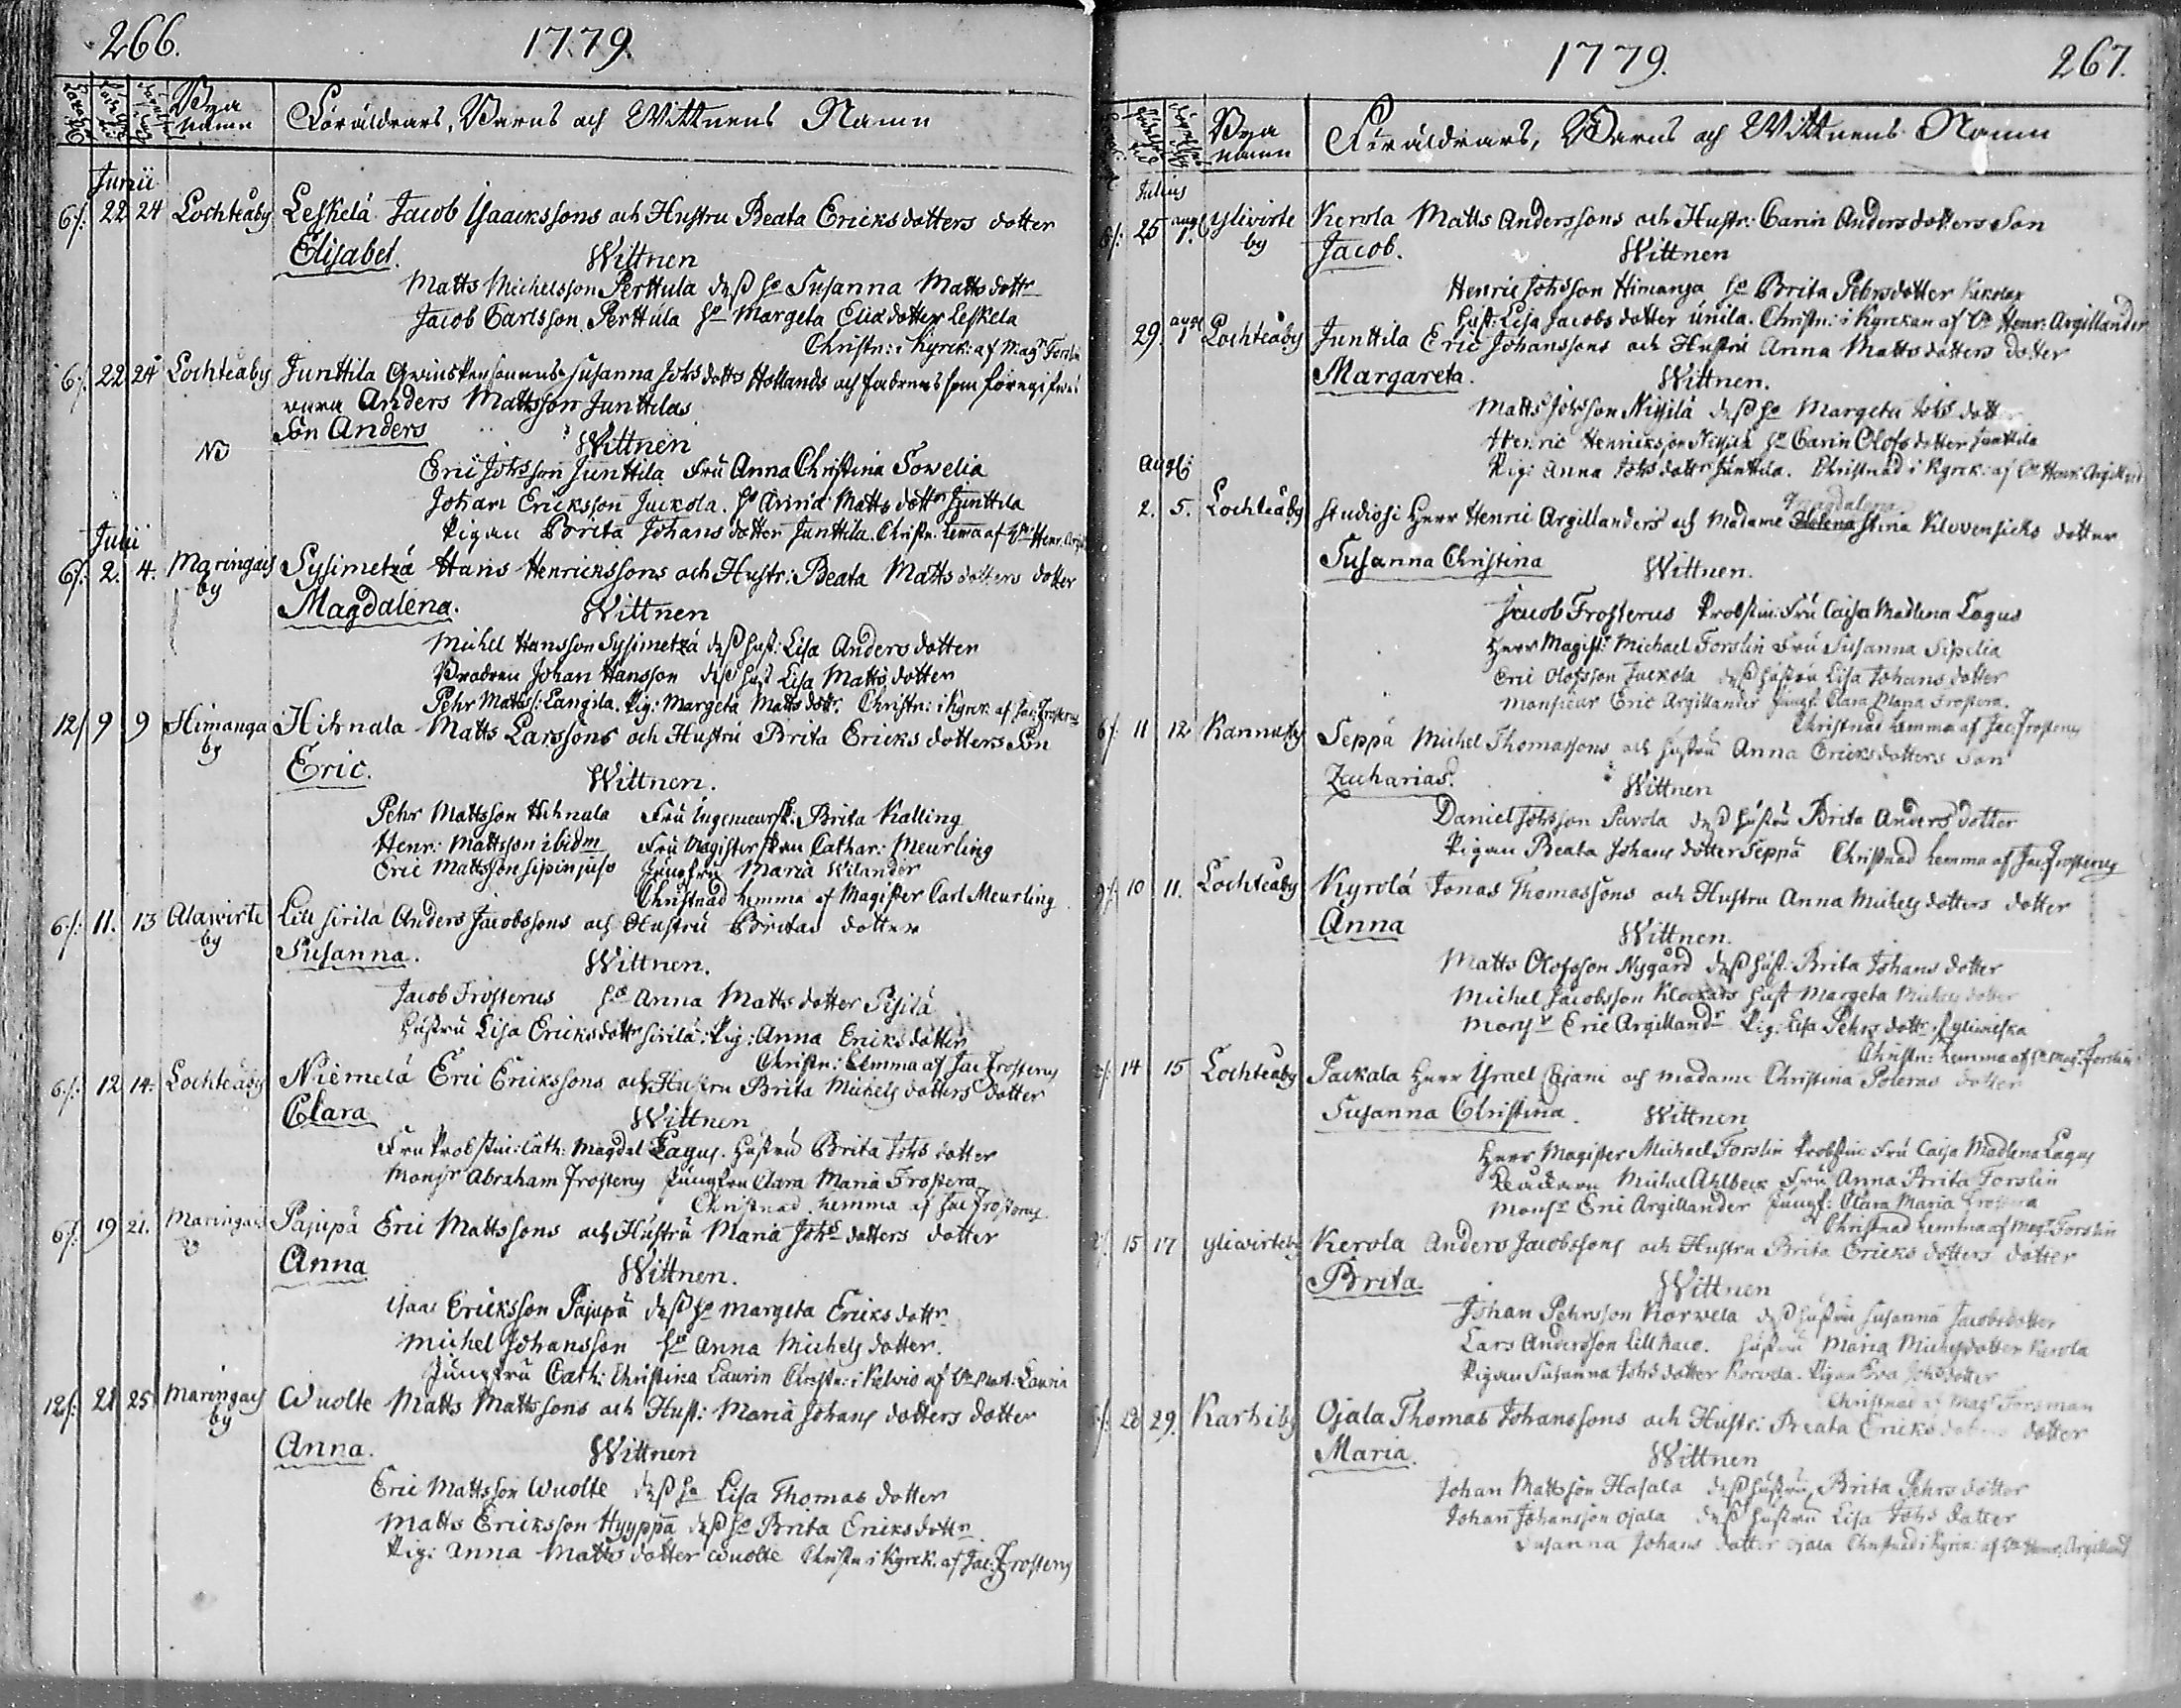 266.
1779.
Bya namn
Föräldrars, Barns och Wittnens Namn
Junii
6/: 22 24 Lochteåby Leskelä Jacob Isaacksons och Hustru Beata Ericksdotters dotter
Elisabet. Wittnen
Matts Michelsson Perttula dess ho Susanna Matts dottr
Jacob Carlsson Perttula ho Margeta Eliædotter Leskelä
Christn: i Kyrck: af Magr Forslin
6/: 22 24 Lochteåby Junttila Susanna Johsdotts Hollands och fadrens som föregifves
vara Anders Mattsson Junttilas
Son Anders
Wittnen
Eric Johsson Junttila Fru Anna Christina Sowelia
Johan Ericksson Juckola. ho Anna Matts dottr Junttila
Pigan Brita Johansdotter Junttila. Christn. hema af Hr Henr. Argill
Julii
6/: 2. 4. Maringais by Sysimetzä Hans Henricksons och Hustr: Beata Mattsdotters dotter
Magdalena. Wittnen
Michel Hansson Sysimetzä dess hust: Lisa Anders dotter
Brodren Johan Hansson dess hust Lisa Matts dotter
Pehr Mattss: Langila. Pig: Margeta Matts dottr. Christn: i Kyrck. af Jac: Frosterus
12/ 9 9 Himanga by Hihnala Matts Larssons och Hustru Brita Ericks dotters Son
Eric.
Wittnen.
Pehr Mattsson Hihnala Fru Ingenieursk. Brita Kalling
Henr: Mattsson ibidm Fru Magisterskan Cathar: Meurling
Eric Mattsson Sipinjuso Jungfru Maria Wilander
Christnad hemma af Magister Carl Meurling
6/: 11. 13 Alawirte by Lill sirilä Anders Jacobssons och Hustru Britas dotter
Susanna. Wittnen.
Jacob Frosterus ho Anna Matts dotter Pisilä
Hustru Lisa Ericks dottr sirilä: Pig: Anna Ericks dotter
Christn: hemma af Jac Frosterus
6/: 12 14. Lochteåby Niemelä Eric Erickssons och Hustru Brita Michels dotters dotter
Clara
Wittnen
Fru Probstin: Cath: Magdal Lagus. Hustru Brita Johs dotter
Monsr Abraham Frosterus Jungfru Clara Maria Frostera
Christnad hemma af Jac Frosterus
6/: 19 21. Maringais Pajupä Eric Mattssons och Hustru Maria Johs dotters dotter
Anna
Wittnen.
Isaac Ericksson Pajupä dess ho Margeta Ericks dottr
Michel Johansson ho Anna Michels dotter.
Jungfru Cath: Christina Laurin Christn: i Kelvio af Hr Matt: Laurin
12/: 21 25 Maringais by Wuolte Matts Mattssons och Hust: Maria Johans dotters dotter
Anna. Wittnen
Eric Mattsson Wuolte dess ho Lisa Thomas dotter
Matts Ericksson Hyyppä dess ho Brita Ericks dottr
Pig: Anna Matts dotter Wuolte Christn i Kyrck. af Jac: Frosterus
1779. 267.
Bya namn
Föräldrars, Barns och Wittnens Namn
Julius
6/: 25 aug 1. Ylivirte by Kerola Matts Anderssons och Hustr: Carin Andersdotters Son
Jacob. Wittnen
Henric Johsson Himanga ho Brita Pehrsdotter
Hust: Lisa Jacobs dotter Unila. Christn: i Kyrckan af Hr Henr: Argillander
29. aug 1 Lochteåby Junttila Eric Johanssons och Hustru Anna Matts dotters dotter
Margareta. Wittnen.
Matts Johsson Nissilä dess ho Margeta Johs dott
Henric Henricksson Nissilä ho Carin Olofs dotter Junttila
Pig: Anna Johs dottr Junttila. Christnad i Kyrck: af Hr Henr: Argilland
Augti
2. 5. Lochteåby Studiosi Herr Henric Argillanders och Madame Magdalena Stina Klövensicks dotter
Susanna Christina Wittnen.
Jacob Frosterus Probstin: Fru Caisa Madlena Lagus
Herr Magist: Michael Forslin Fru Susanna Sipelia
Eric Olofsson Juckola dess hustru Lisa Johans dotter
Monsieur Eric Argillander Jungf. Clara Maria Frostera.
Christnad hemma af Jac: Frosterus
6/: 11 12 Kannusby Seppä Michel Thomassons och hustru Anna Ericksdotters Son
Zacharias. Wittnen
Daniel Johsson Pavola dess hustru Brita Anders dotter
Pigan Beata Johans dotter Seppä Christnad hemma af Jac: Frosterus
9/: 10 11. Lochteåby Kyrölä Jonas Thomassons och Hustru Anna Michels dotters dotter
Anna Wittnen.
Matts Olofsson Nygård dess hust: Brita Johans dotter
Michel Jacobsson Klockars hust Margeta Michels dotter
Monsr Eric Argillandr Pig: Lisa Pehrs dottr Pyliwiska
Christn: hemma af Hr Magr Forslin
14 15 Lochteåby Packala Herr Israel Cajani och Madame Christina Polenas dotter
Susanna Christina. Wittnen
Herr Magister Michael Forslin Probstin: Fru Caisa Madlena Lagus
Michel Ahlbeck Fru Anna Brita Forslin
Monsr Eric Argillander Jungf: Clara Maria Frostera
Christnad hemma af Magr Forslin
15 17 Yliwirteby Kerola Anders Jacobssons och Hustru Brita Ericks dotters dotter
Brita Wittnen
Johan Pehrsson Korwela dess hustru Susanna Jacobsdotter
Lars Andersson Lill Kaco. hustru Maria Michelsdotter Kerola
Pigan Susanna Johsdotter Korvela. Pigan Eva Johsdotter
Christnad af Magr Forsman
28 29. Karhiby Ojala Thomas Johanssons och Hustr: Beata Ericks dotters dotter
Maria. Wittnen
Johan Mattsson Hasala dess hustru Brita Pehrs dotter
Johan Johansson Ojala dess hustru Lisa Johs dotter
Susanna Johans dotter Ojala Christnad i Kyrck: af Hr Henr. Argilland